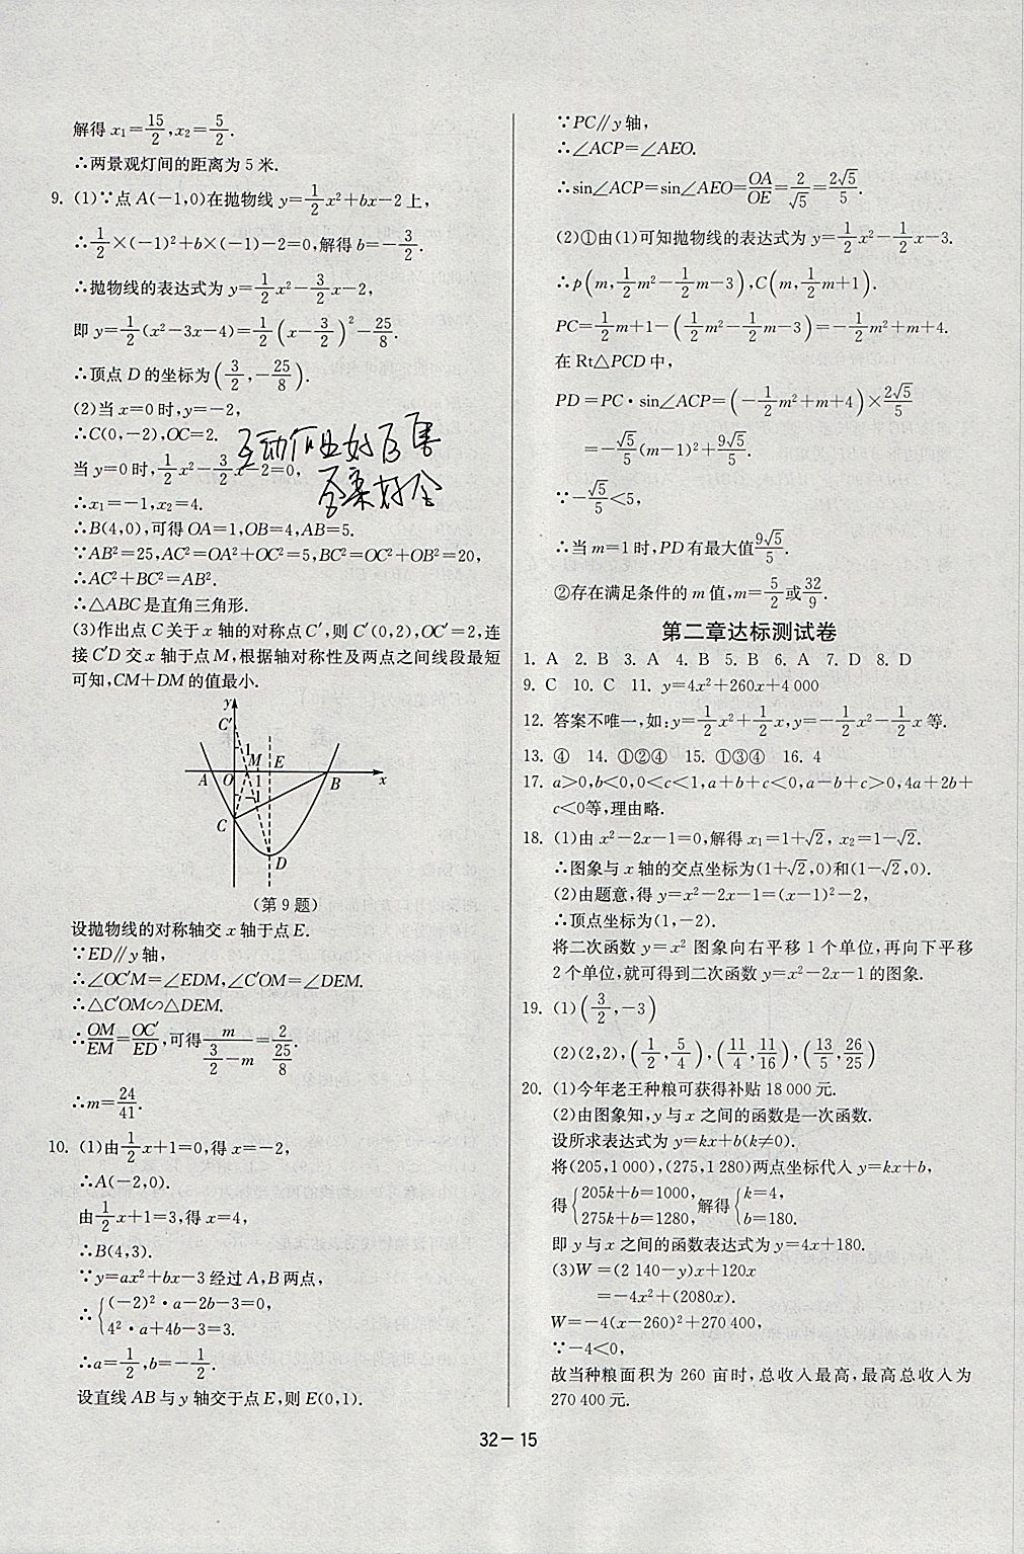 解得 x₁=15/2,x₂=5/2.
∴两景观灯间的距离为 5 米.
9. (1)∵点 A(−1,0)在抛物线 y=1/2x²+bx−2 上,
∴1/2×(−1)²+b×(−1)−2=0,解得 b=−3/2.
∴抛物线的表达式为 y=1/2x²−3/2x−2,
即 y=1/2(x²−3x−4)=1/2(x−3/2)²−25/8.
∴顶点 D 的坐标为(3/2,−25/8).
(2)当 x=0 时,y=−2,
∴C(0,−2),OC=2.
当 y=0 时,1/2x²−3/2x−2=0,
∴x₁=−1,x₂=4.
∴B(4,0),可得 OA=1,OB=4,AB=5.
∵AB²=25,AC²=OA²+OC²=5,BC²=OC²+OB²=20,
∴AC²+BC²=AB².
∴△ABC 是直角三角形.
(3)作出点 C 关于 x 轴的对称点 C′,则 C′(0,2),OC′=2,连
接 C′D 交 x 轴于点 M,根据轴对称性及两点之间线段最短
可知,CM+DM 的值最小.
y
C′
1
M E
A O 1 B x
C
D
(第 9 题)
设抛物线的对称轴交 x 轴于点 E.
∵ED∥y 轴,
∴∠OC′M=∠EDM,∠C′OM=∠DEM.
∴△C′OM∽△DEM.
∴OM/EM=OC′/ED,可得m/(3/2−m)=2/(25/8).
∴m=24/41.
10. (1)由1/2x+1=0,得 x=−2,
∴A(−2,0).
由1/2x+1=3,得 x=4,
∴B(4,3).
∵y=ax²+bx−3 经过 A,B 两点,
∴{(−2)²·a−2b−3=0,
4²·a+4b−3=3.
∴a=1/2,b=−1/2.
设直线 AB 与 y 轴交于点 E,则 E(0,1).
∵PC∥y 轴,
∴∠ACP=∠AEO.
∴sin∠ACP=sin∠AEO=OA/OE=2/√5=2√5/5.
(2)①由(1)可知抛物线的表达式为 y=1/2x²−1/2x−3.
∴p(m,1/2m²−1/2m−3),C(m,1/2m+1).
PC=1/2m+1−(1/2m²−1/2m−3)=−1/2m²+m+4.
在 Rt△PCD 中,
PD=PC·sin∠ACP=(−1/2m²+m+4)×2√5/5
=−√5/5(m−1)²+9√5/5.
∵−√5/5<5,
∴当 m=1 时,PD 有最大值9√5/5.
②存在满足条件的 m 值,m=5/2或32/9.
第二章达标测试卷
1. A 2. B 3. A 4. B 5. B 6. A 7. D 8. D
9. C 10. C 11. y=4x²+260x+4 000
12. 答案不唯一,如:y=1/2x²+1/2x,y=−1/2x²−1/2x 等.
13. ④ 14. ①②④ 15. ①③④ 16. 4
17. a>0,b<0,0<c<1,a+b+c<0,a−b+c>0,4a+2b+
c<0等,理由略.
18. (1)由 x²−2x−1=0,解得 x₁=1+√2, x₂=1−√2.
∴图象与 x 轴的交点坐标为(1+√2,0)和(1−√2,0).
(2)由题意,得 y=x²−2x−1=(x−1)²−2,
∴顶点坐标为(1,−2).
将二次函数 y=x² 图象向右平移 1 个单位,再向下平移
2 个单位,就可得到二次函数 y=x²−2x−1 的图象.
19. (1)(3/2,−3)
(2)(2,2),(1/2,5/4),(11/4,11/16),(13/5,26/25)
20. (1)今年老王种粮可获得补贴 18 000 元.
(2)由图象知,y 与 x 之间的函数是一次函数.
设所求表达式为 y=kx+b(k≠0).
将(205,1 000),(275,1 280)两点坐标代入 y=kx+b,
得{205k+b=1000, 275k+b=1280,解得{k=4, b=180.
即 y 与 x 之间的函数表达式为 y=4x+180.
(3)W=(2 140−y)x+120x
=−4x²+(2080x).
W=−4(x−260)²+270 400,
∵−4<0,
故当种粮面积为 260 亩时,总收入最高,最高总收入为
270 400 元.
32−15